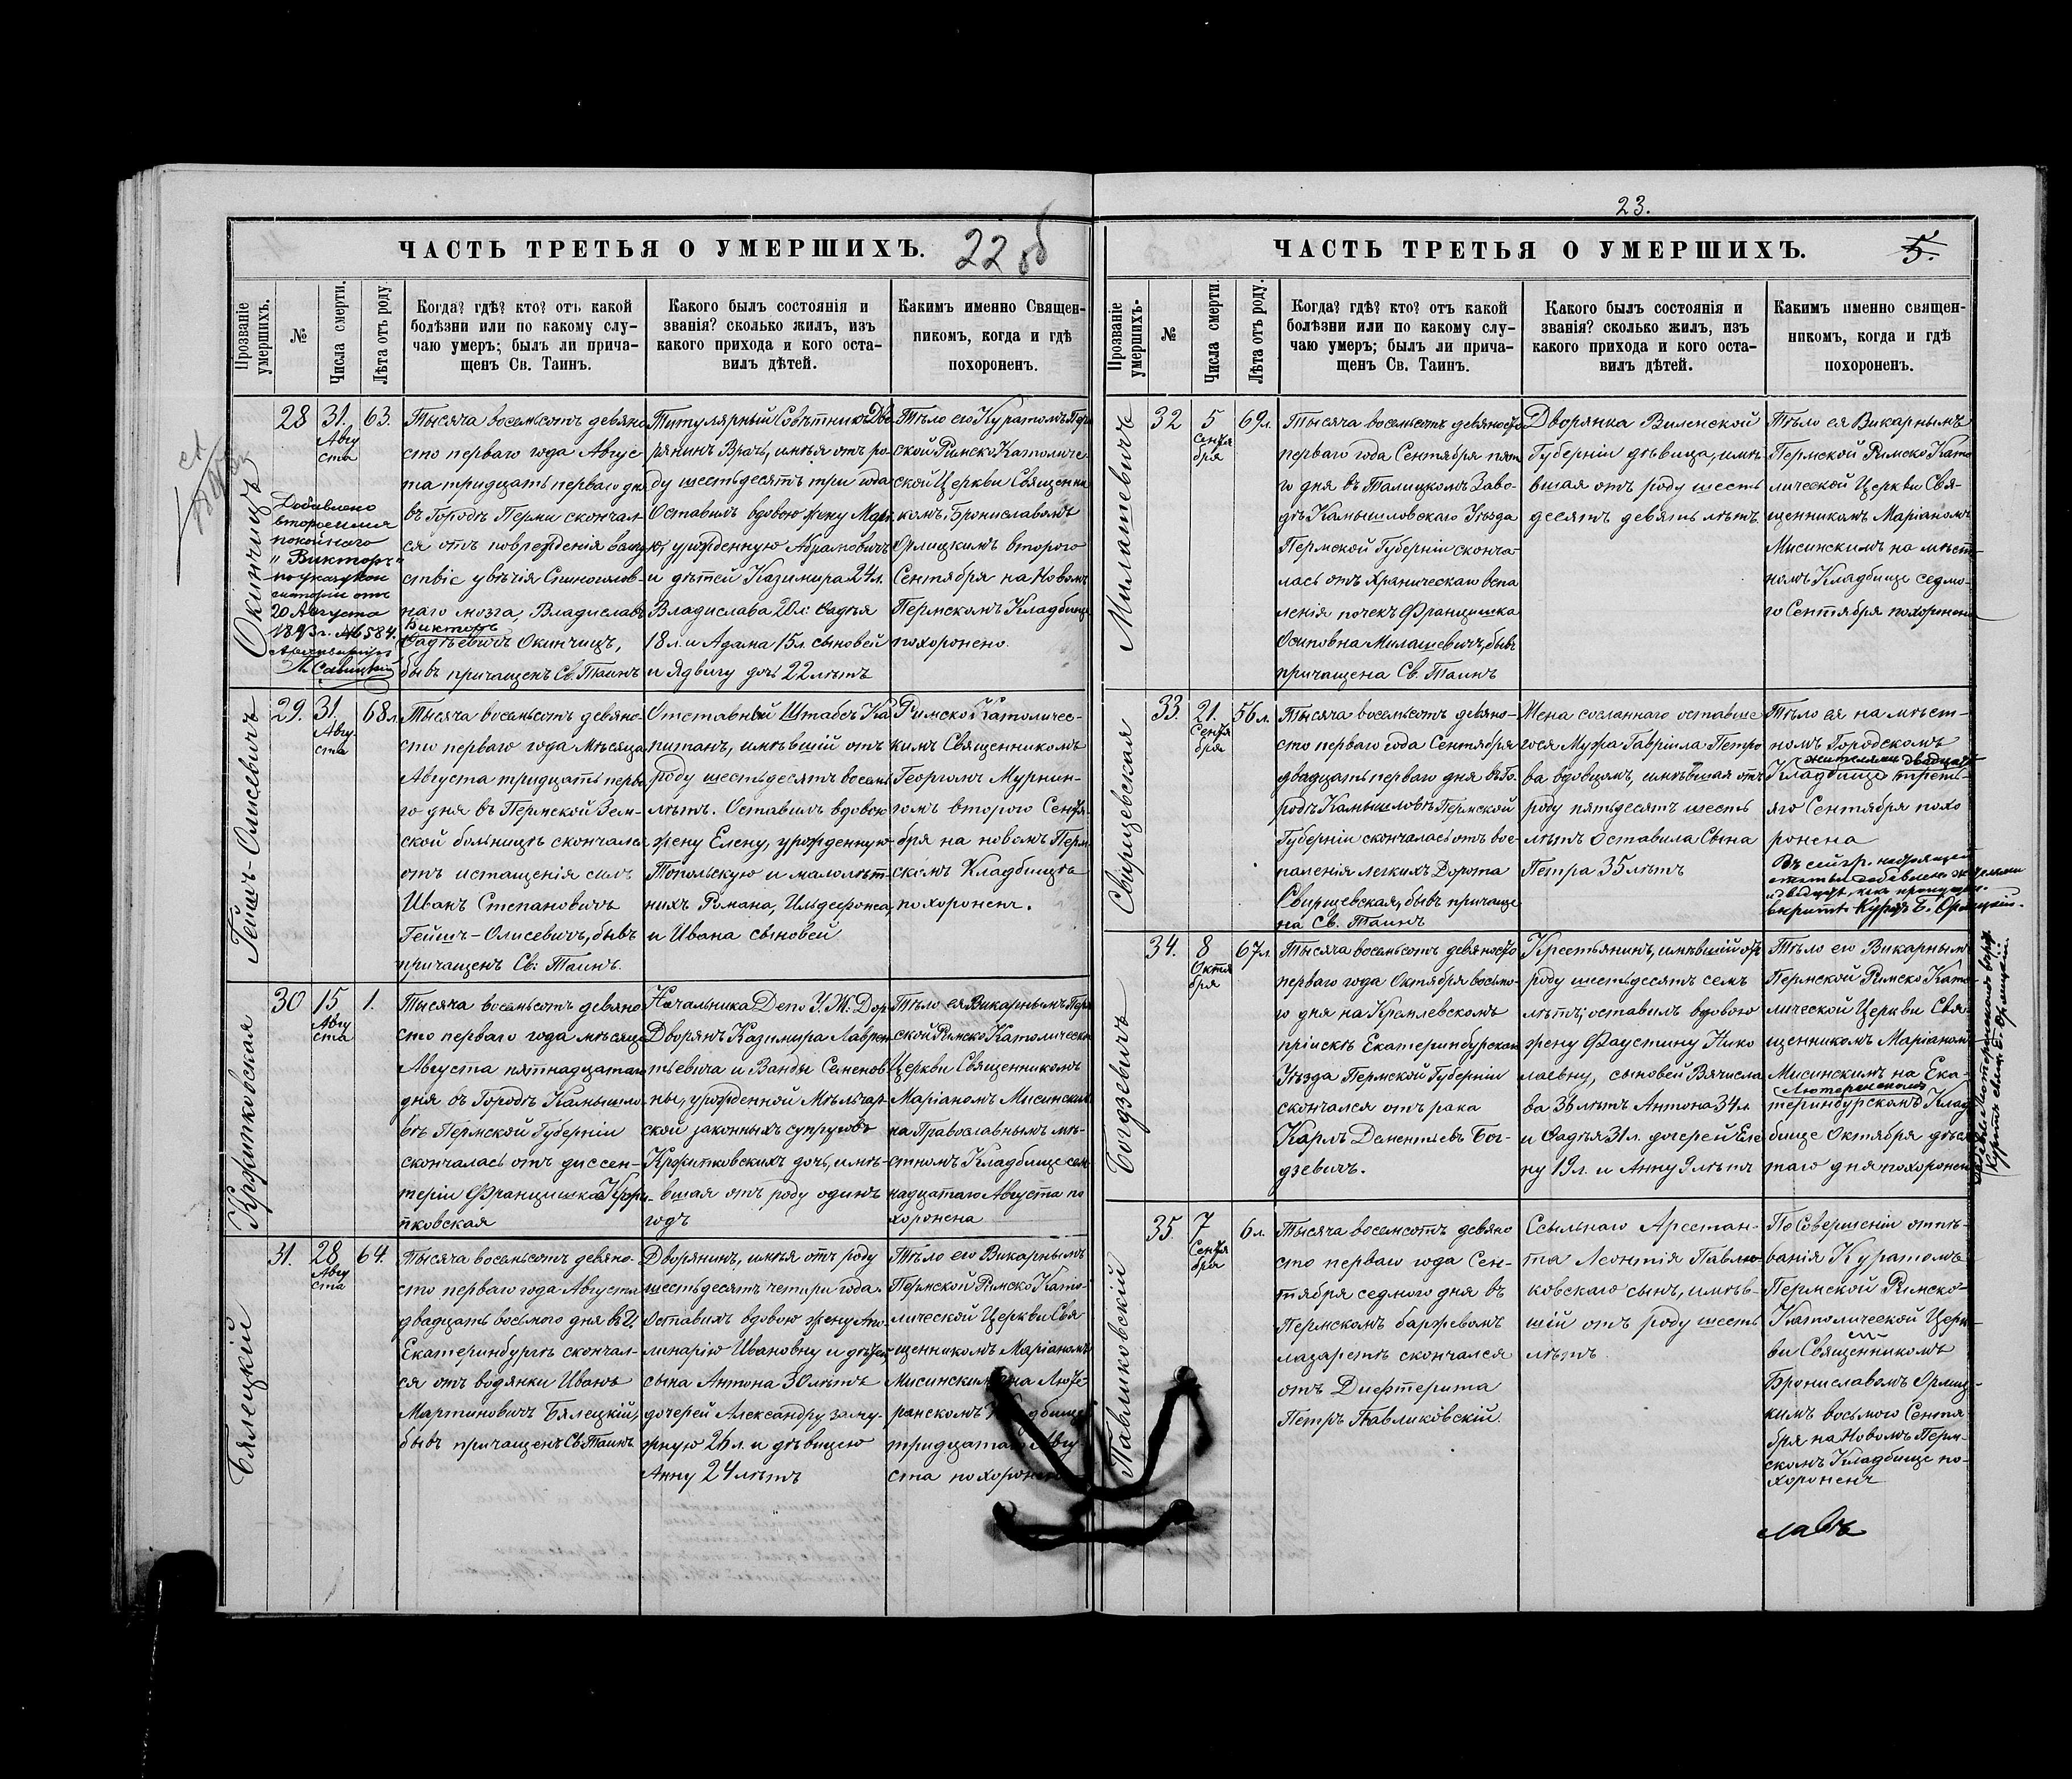 ЧАСТЬ ТРЕТЬЯ О УМЕРШИХЪ.
22 об
Прозваніе умершихъ.
№
Числа смерти.
Лѣта отъ роду.
Когда? гдѣ? кто? отъ какой
болѣзни или по какому слу-
чаю умеръ; былъ ли прича-
щенъ Св. Таинъ.
Какого былъ состоянія и
званія? сколько жилъ, изъ
какого прихода и кого оста-
вилъ дѣтей.
Каким именно Священ-
никомъ, когда и гдѣ
похороненъ.
Окинчицъ
28
31.
Авгу
ста
63.
Добавлено
второе имя
покойнаго
"Викторъ"
по указу кон
систоріи отъ
20 Августа
1893 г. №6584.
Тысяча восемьсотъ девяно
сто перваго года Авгус
та тридцать перваго дня
въ Городѣ Перми скончал-
ся отъ поврежденія вслѣд
ствіе увѣчія Спинноголов-
наго мозга, Владиславъ
Викторъ
Фадѣевичъ Окинчицъ,
бывъ причащенъ Св. Таинъ
Титулярный Совѣтникъ Дво
рянинъ Врачъ, имѣя отъ ро-
ду шестьдесятъ три года
Оставилъ вдовою жену Марі
ю, урожденную Абрамовичъ
и дѣтей Казимира 24 л.
Владислава 20 л: Фадѣя
18 л. и Адама 15 л. сыновей
и Ядвигу дочь 22 лѣтъ
Тѣло его Куратомъ Перм
ской Римско Католиче-
ской Церкви Священни
комъ Брониславомъ
Орлицкимъ второго
Сентября на Новомъ
Пермскомъ Кладбищѣ
похоронено.
Гейшъ-Олисевичъ
29.
31.
Авгу-
ста
68 л.
Тысяча восемьсотъ девяно-
сто перваго года мѣсяца
Августа тридцать перва
го дня въ Пермской Зем-
ской больницѣ скончался
отъ истощенія силъ
Иванъ Степановичъ
Гейшъ-Олисевичъ, бывъ
причащенъ Св: Таинъ.
Отставный Штабсъ Ка
питанъ, имѣвшій отъ
роду шестьдесятъ восемь
лѣтъ. Оставилъ вдовою
жену Елену, урожденную
Топольскую и малолѣт-
нихъ Романа, Ильдефонса,
и Ивана сыновей
Римско Католичес-
кимъ Священникомъ
Георгіемъ Мурнин-
гомъ второго Сентя-
бря на новомъ Перм
скомъ Кладбищѣ
похороненъ.
Кржитковская
30
15
Авгу
ста
1.
Тысяча восемьсотъ девяно
сто перваго года мѣсяца
Августа пятнадцатаго
дня въ Городѣ Камышло-
вѣ Пермской Губерніи
скончалась отъ диссен-
теріи Францишка Кржи-
тковская
Начальника Депо У. Ж. Дор.
Дворянъ Казимира Лаврен
тьевича и Ванды Семенов
ны, урожденной Мѣльчар-
ской законныхъ супруговъ
Кржитковскихъ дочь, имѣ-
вшая отъ роду одинъ
годъ
Тѣло ея Викарнымъ Перм
ской Римско Католической
Церкви Священникомъ
Маріаномъ Мисинскимъ
на Православнымъ мѣ-
стномъ Кладбище сем-
надцатаго Августа по
хоронена
Бялецкій
31.
28
Авгу
ста
64.
Тысяча восемьсотъ девяно-
сто перваго года Августа
двадцать восьмого дня въ Г.
Екатеринбургѣ скончал-
ся отъ водянки Иванъ
Мартиновичъ Бялецкій,
бывъ причащенъ Св. Таинъ
Дворянинъ, имѣя отъ роду
шестьдесятъ четыри года.
Оставилъ вдовою жену Апо-
линарію Ивановну и дѣтей
сына Антона 30 лѣтъ
дочерей Александру заму-
жную 26 л. и дѣвицею
Анну 24 лѣтъ
Тѣло его Викарнымъ
Пермской Римско Като-
лической Церкви Свя
щенникомъ Маріаномъ
Мисинскимъ на Люте-
ранскомъ Кладбище
тридцатаго Авгу-
ста похоронено
23.
ЧАСТЬ ТРЕТЬЯ О УМЕРШИХЪ.
5.
Прозваніе умершихъ.
№
Числа смерти.
Лѣта отъ роду.
Когда? гдѣ? кто? отъ какой
болѣзни или по какому слу-
чаю умеръ; былъ ли прича-
щенъ Св. Таинъ.
Какого былъ состоянія и
званія? сколько жилъ, изъ
какого прихода и кого оста-
вилъ дѣтей.
Каким именно священ-
никомъ, когда и гдѣ
похороненъ.
Милашевичъ
32
5
Сентя
бря
69 л.
Тысяча восемьсотъ девяносто
перваго года Сентября пята
го дня въ Талицкомъ Заво-
дѣ Камышловскаго Уѣзда
Пермской Губерніи сконча
лась отъ Хроническаго воспа
ленія почекъ Францишка
Осиповна Милашевичъ, бывъ
причащена Св. Таинъ
Дворянка Виленской
Губерніи дѣвица, имѣ-
вшая отъ роду шесть
десятъ девять лѣтъ.
Тѣло ея Викарнымъ
Пермской Римско Като
лической Церкви Свя-
щенникомъ Маріаномъ
Мисинскимъ на мѣст-
номъ Кладбище седмо-
го Сентября похоронена
Свирщевская
33.
21.
Сентя
бря
56 л.
Тысяча восемьсотъ девяно-
сто перваго года Сентября
двадцать перваго дня въ Го-
родѣ Камышловѣ Пермской
Губерніи скончалась отъ вос-
паленія легкихъ Дорота
Свирщевская, бывъ причаще
на Св. Таинъ
Жена сосланнаго оставше
гося Мужа Гавріила Петро
ва вдовцомъ, имѣвшая отъ
роду пятьдесятъ шесть
лѣтъ Оставила Сына
Петра 35 лѣтъ
Тѣло ея на мѣст-
номъ Городскомъ
жителями двадцать
Кладбище треть-
яго Сентября похо
ронена
Богдзевичъ
34.
8
Октя
бря
67 л.
Тысяча восемьсотъ девяносто
перваго года Октября восьмо-
го дня на Кремлевскомъ
пріискѣ Екатеринбурскаго
Уѣзда Пермской Губерніи
скончался отъ рака
Карлъ Дементьевъ Бог-
дзевичъ.
Крестьянинъ, имѣвшій отъ
роду шестьдесятъ семь
лѣтъ; оставилъ вдовою
жену Фаустину Нико
лаевну, сыновей Вячесла
ва 36 лѣтъ Антона 34 л.
и Фадѣя 31 л. дочерей Еле
ну 19 л. и Анну 9 лѣтъ
Тѣло его Викарнымъ
Пермской Римско Като
лической Церкви Свя-
щенникомъ Маріаномъ
Мисинскимъ на Ека-
Лютеранскомъ
теринбурскомъ Клад
бище Октября деся
таго дня похоронен
Павликовскій
35.
7
Сентя
бря
6 л.
Тысяча восемсотъ девяно
сто перваго года Сен-
тября седмого дня въ
Пермскомъ баржевомъ
лазаретѣ скончался
отъ Дифтерита
Петръ Павликовскій.
Ссыльнаго Арестан-
та Леонтія Павли-
ковскаго сынъ, имѣв-
шій отъ роду шесть
лѣтъ
По Совершеніи отпѣ-
ванія Куратомъ
Пермской Римско-
Католической Церк-
ви Священникомъ
Брониславомъ Орлиц-
кимъ восьмого Сентя
бря на Новомъ Перм-
скомъ Кладбище по-
хороненъ